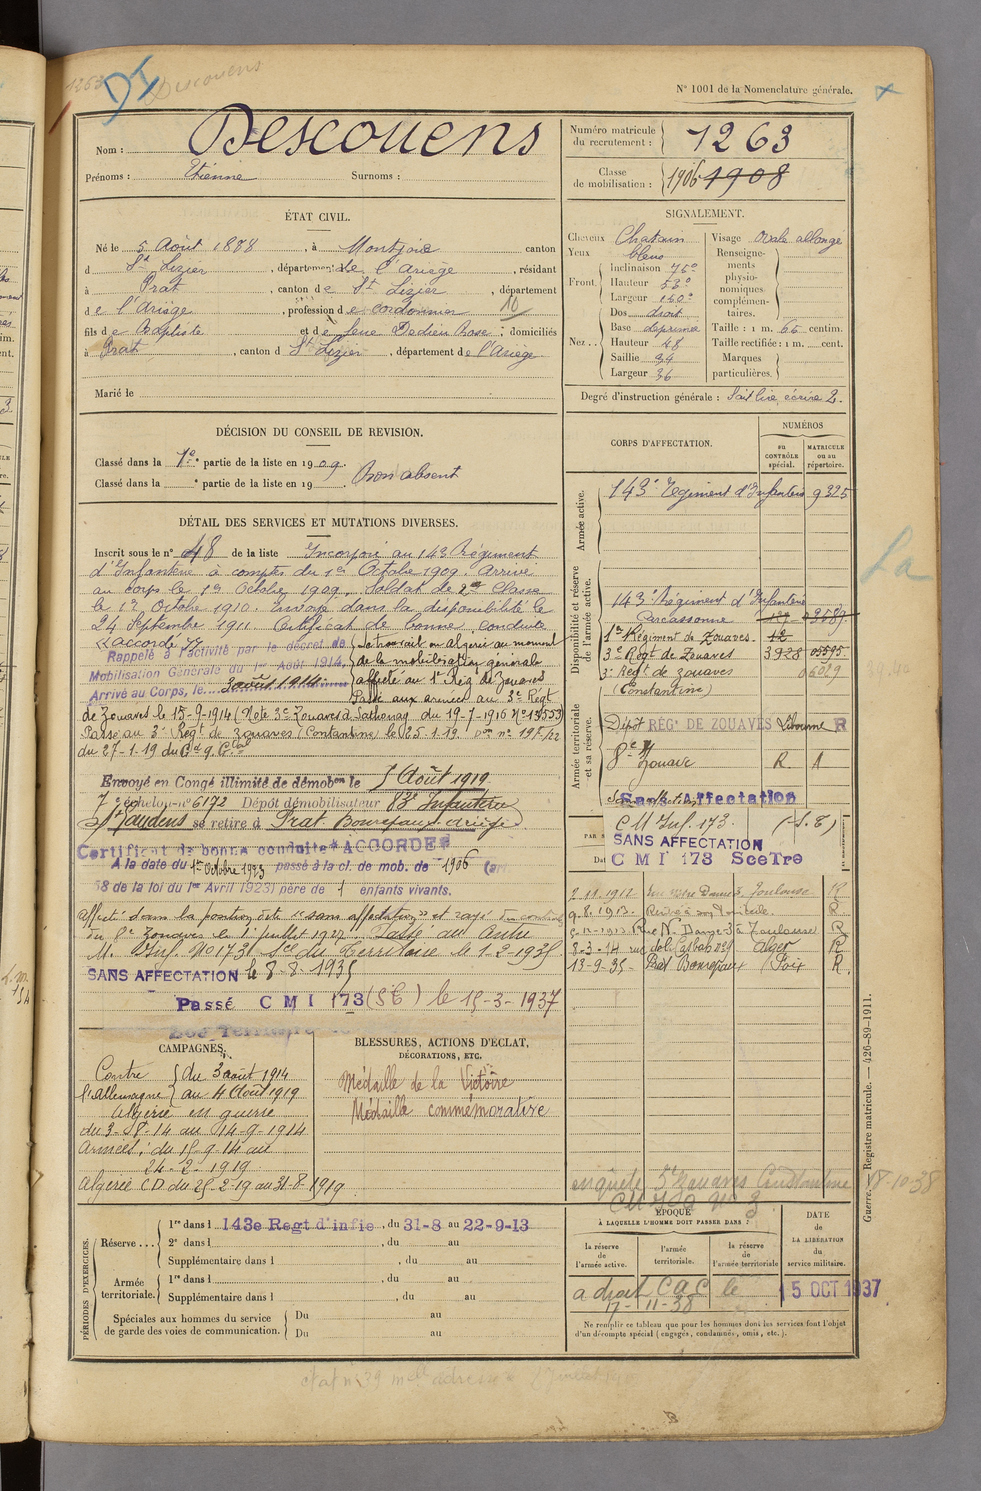 1263 DI Descouens
N° 1001 de la Nomenclature générale.
Nom : Descouens
Prénoms : Etienne Surnoms :
Numéro matricule du recrutement : 1263
Classe de mobilisation : 1906 1908
ÉTAT CIVIL.
Né le 5 Août 1888, à Montjoie canton
d St Lizier, département de l'Ariège, résidant
à Prat, canton de St Lizier, département
de l'Ariège, profession de cordonnier 10
fils de Baptiste et de feue Dedieu Rose; domiciliés
à Prat, canton d St Lizier, département de l'Ariège
Marié le
SIGNALEMENT.
Cheveux Chatain
Yeux bleus
Front. Inclinaison 75°
Hauteur 53°
Largeur 140°
Nez.. Dos droit
Base déprimé
Hauteur 48
Saillie 34
Largeur 36
Visage Ovale allongé
Renseignements physionomiques complémentaires.
Taille : 1 m. 66 centim.
Taille rectifiée : 1 m. cent.
Marques particulières.
Degré d'instruction générale : Sait lire, écrire 2.
DÉCISION DU CONSEIL DE REVISION.
Classé dans la 1e partie de la liste en 1909.
Classé dans la partie de la liste en 19 . Bon absent
DÉTAIL DES SERVICES ET MUTATIONS DIVERSES.
Inscrit sous le n° 48 de la liste Incorporé au 143 Régiment
d'Infanterie à compter du 1er Octobre 1909. Arrivé
au corps le 1er Octobre 1909, Soldat de 2me Classe
le 1er Octobre 1910. Envoyé dans la disponibilité le
24 Septembre 1911. Certificat de bonne conduite
"accordé"
Rappelé à l'activité par le décret de
Mobilisation Générale du 1er Août 1914,
Arrivé au Corps, le 3 août 1914
Se trouvait en algérie au moment
de la mobilisation générale
affecté au 1er Rég de Zouaves
Passé aux armées au 3e Régt
de Zouaves le 15-9-1914 (Note 3e Zouaves à Sathonay du 19-7-1916 N° 13553)
Passé au 3e Regt de zouaves (Constantine) le 25.1.19.
du 27-1-19 du Gd Q. Gral
Envoyé en Congé illimité de démobon le 5 Août 1919
7e échelon - n° 6192 Dépôt démobilisateur 83e Infanterie
St Gaudens se retire à Prat Bonrepaux Ariège
Certificat de bonne conduite "ACCORDÉ"
A la date du 1er Octobre 1923 passé à la cl. de mob. de 1906 (art
58 de la loi du 1er Avril 1923) père de 1 enfants vivants.
affecté dans la position dite "sans affectation" et rayé du contrôle
du 8e Zouaves le 1er juillet 1927. Passé au Centre
M. Inf. No 173 Son du Territoire le 1-2-1935
SANS AFFECTATION le 8-8-1935
Passé C M I 173 (St) le 15-3-1937
CORPS D'AFFECTATION.
NUMÉROS
au CONTRÔLE spécial.
MATRICULE ou au répertoire.
Armée active.
143e Régiment d'Infanterie 9325
Disponibilité et réserve de l'armée active.
143e Régiment d'Infanterie
Carcassonne
1er Régiment de Zouaves 12
3e Régt de Zouaves 3928 05595
3e Régt de zouaves 06029
(Constantine)
Armée territoriale et sa réserve.
Dépôt RÉGt DE ZOUAVES Libourne R
8e Zouave R A
Sans Affectation
C M Inf. 173. (S.T)
SANS AFFECTATION
C M I 173 SceTre
2.11.1912 Toulouse R
9-8.1913. Rentré à son domicile. R.
5-11-1913 Rue N. Dame 3 à Toulouse R
8-3-14 rue de la Casbah Alger R
13-9-35 Prat Bonrepaux (Foix R.
CAMPAGNES.
Contre l'allemagne
du 3 août 1914
au 4 Août 1919
Algérie en guerre
du 3-8-14 au 14-9-1914
Armées : du 15-9-14 au
24-2-1919
Algérie CD du 25-2-19 au 31-8-1919
BLESSURES, ACTIONS D'ÉCLAT,
DÉCORATIONS, ETC.
Médaille de la Victoire
Médaille commémorative
enquête 3e Zouaves Constantine 18-10-38
PÉRIODES D'EXERCICES.
Réserve... 1re dans l 143e Regt d'infie, du 31-8 au 22-9-13
2e dans l , du au
Supplémentaire dans l , du au
Armée territoriale. 1re dans l , du au
Supplémentaire dans l , du au
Spéciales aux hommes du service de garde des voies de communication. Du au
Du au
ÉPOQUE
À LAQUELLE L'HOMME DOIT PASSER DANS :
la réserve de l'armée active.
l'armée territoriale.
la réserve de l'armée territoriale
DATE de LA LIBÉRATION du service militaire.
a droit C a C le 15 OCT 1937
17-11-38
Ne remplir ce tableau que pour les hommes dont les services font l'objet
d'un décompte spécial (engagés, condamnés, omis, etc.).
Guerre. Registre matricule. — 426-89-1911.